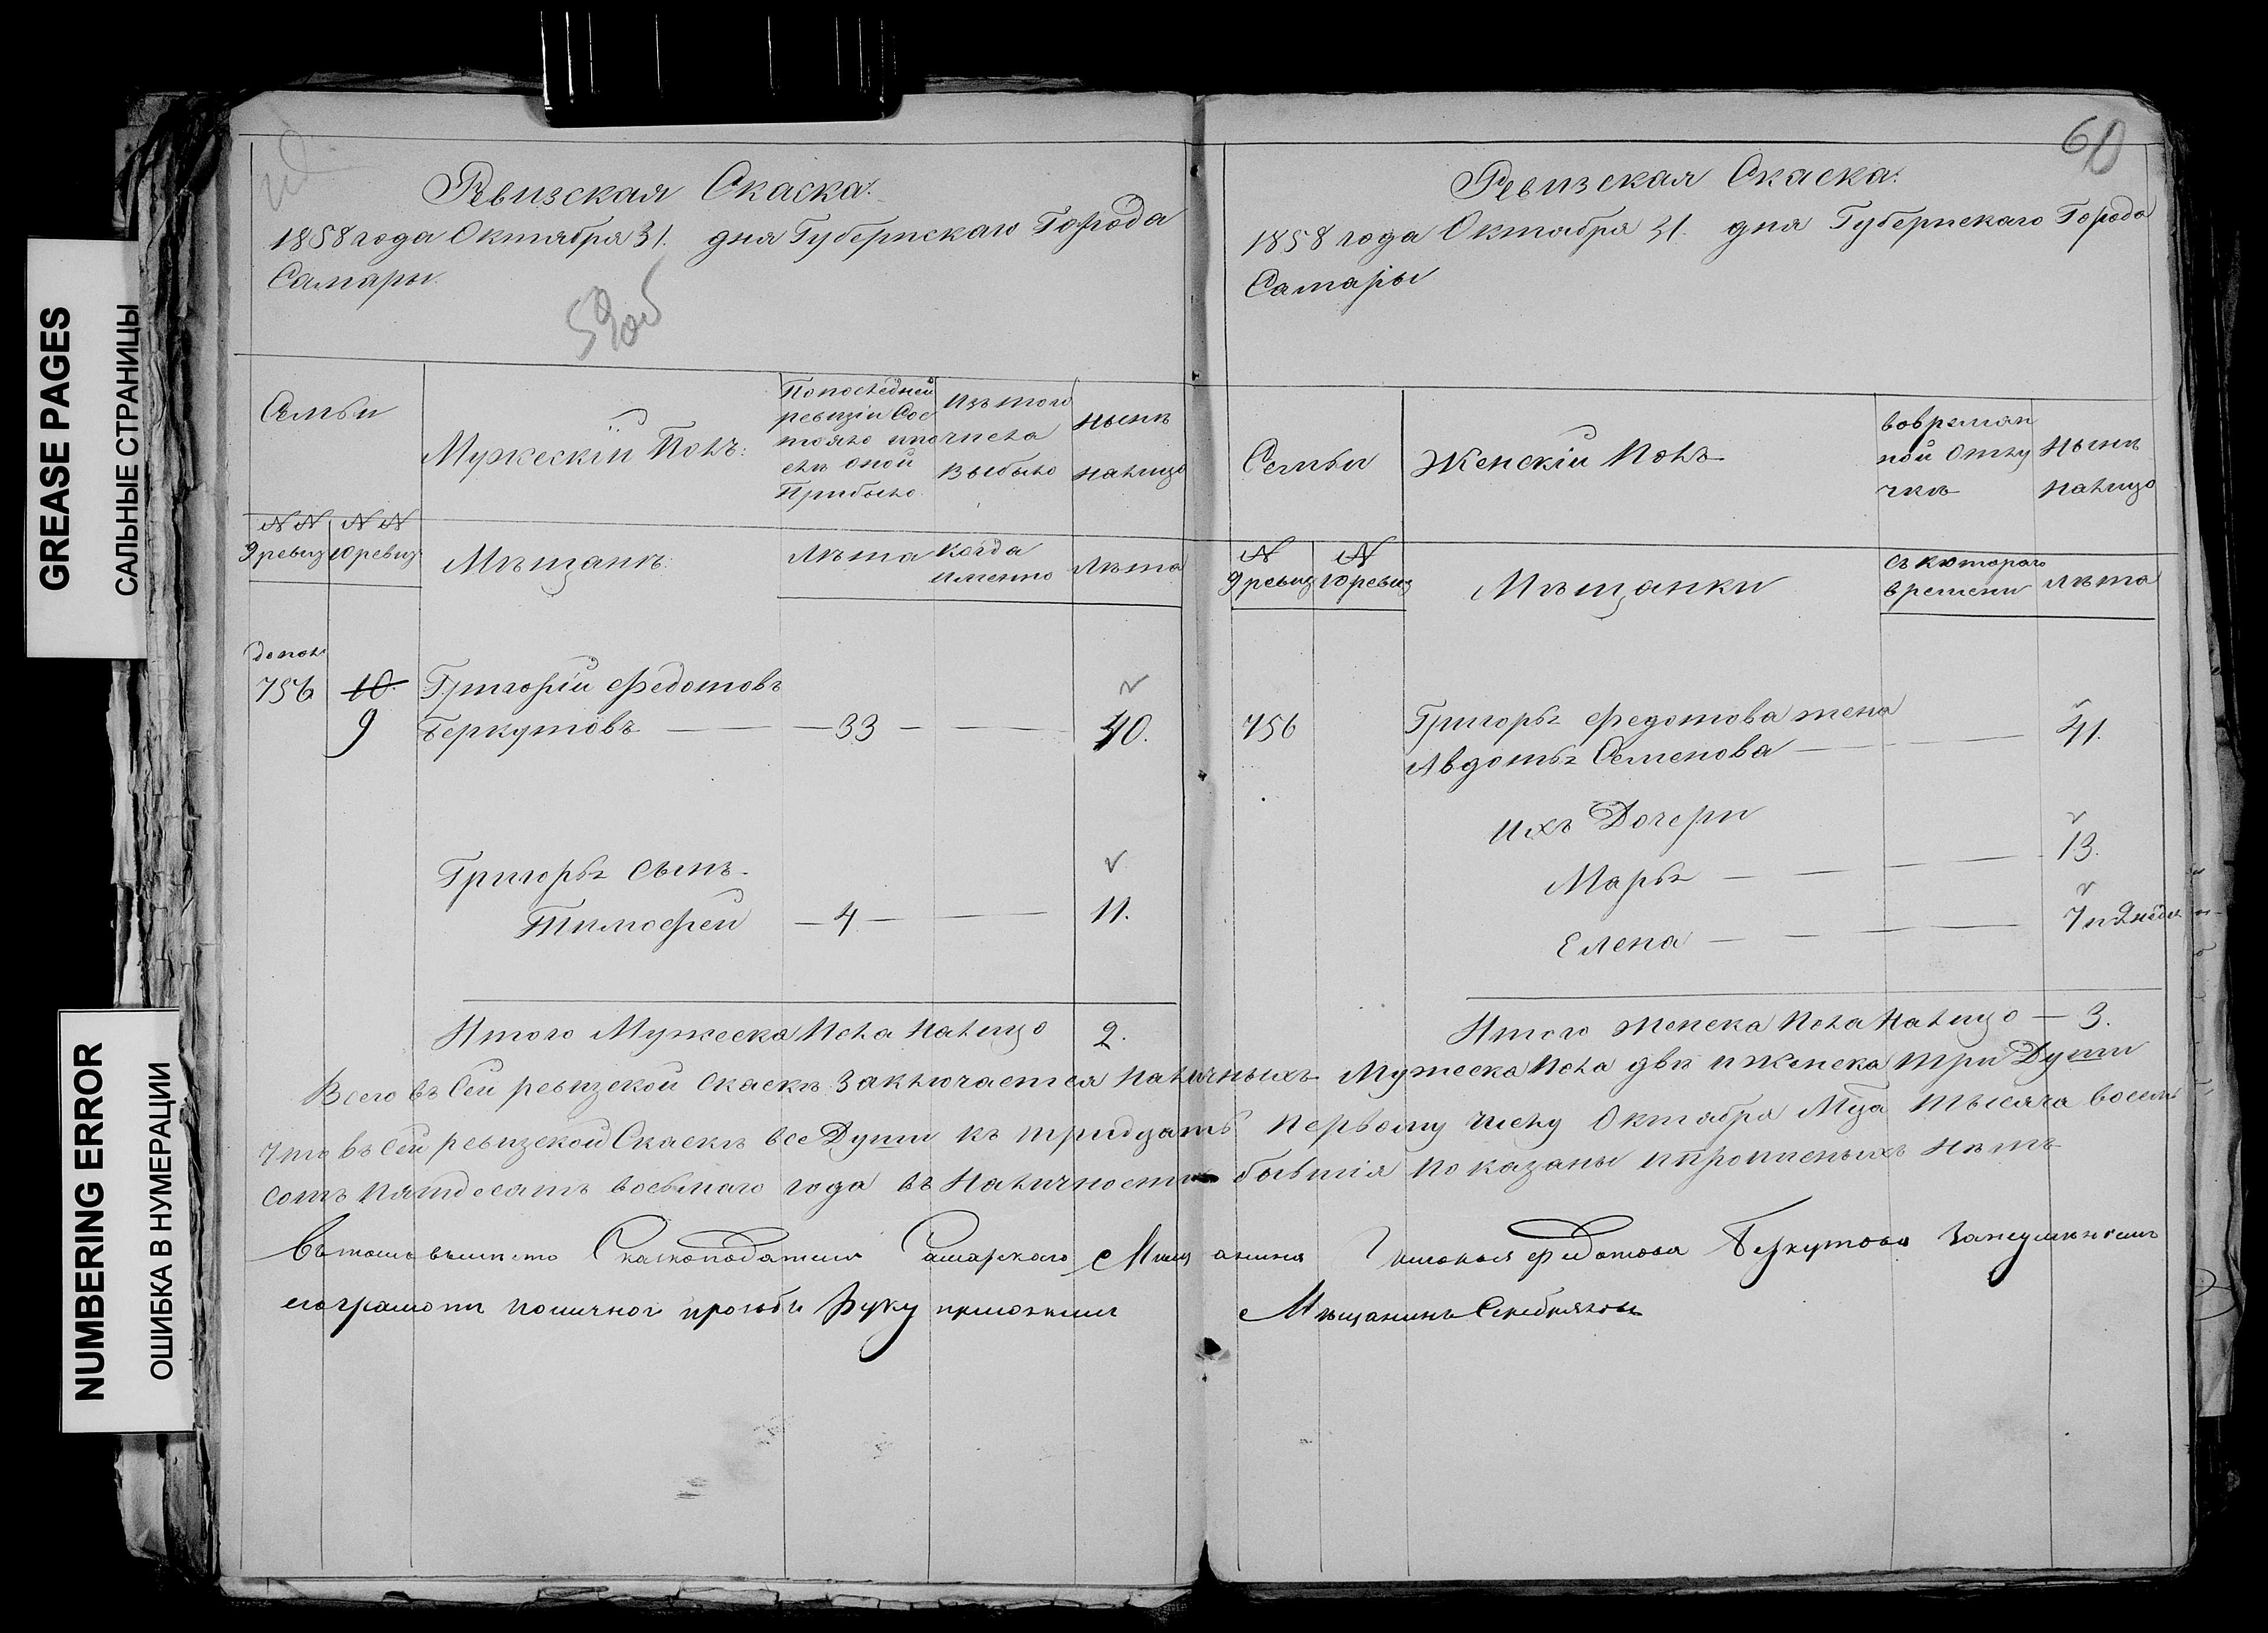 GREASE PAGES
САЛЬНЫЕ СТРАНИЦЫ
NUMBERING ERROR
ОШИБКА В НУМЕРАЦИИ
Ревизская Скаска.
1858 года Октября 31. дня Губернскаго Города
Самары.
59об
Семьи
Мужескiй Полъ:
По последней
ревизiи Сос
тояло и по
слѣ оной
Прибыло
Изъ того
числа
Выбыло
нынѣ
налицо
№№ №№
9 ревиз 10 ревиз
Мѣщанѣ:
Лѣта
когда
именно
Лѣта
допол
756 10. Григорiй Федотовъ
9 Беркутовъ — 33 — 40.
Григорья сынъ
Тимофей — 4 — 11.
Итого Мужеска Пола налицо 2.
60
Ревизская Скаска.
1858 года Октября 31. дня Губернскаго Города
Самары
Семьи
Женскiй Полъ
во времян
ной Отлу
чкѣ
Нынѣ
налицо
№ №
9 ревиз 10 ревиз
Мѣщанки
съ котораго
времени
лѣта
756 Григорья Федотова жена
Авдотья Семенова — 41.
Ихъ Дочери
Марья — 13.
Елена — 7 и 2 недѣл
Итого женска Пола Налицо — 3.
Всего въ Сей ревизской Скаскѣ Заключается Наличныхъ Мужеска Пола двѣ и женска три Души
Что въ Сей ревизской Скаскѣ все Души къ тридцать Первому числу Октября Мца тысяча восемь
сотъ пятдесятъ восьмаго года въ Наличности бывшiя показаны и прописныхъ нѣтъ
Въ томъ вмѣсто Скаскоподателя Самарскаго Мѣщанина Григорья Федотова Беркутова За неумѣнiемъ
его грамоти по личной прозьбѣ Руку приложилъ Мѣщанинъ Серебряковъ